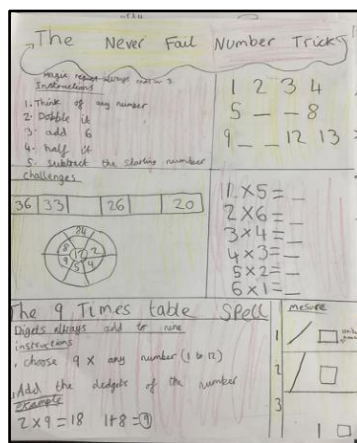 The Never Fail Number Trick
magic always end in 3
Instructions
1. Think of any number
2. Dobble it
3. add 6
4. half it
5. subtract the starting number
1 2 3 4
5 _ _ 8
9 _ _ 12 13
challenges
36 33 26 20
24
8 12 2
9 5 4
11 x 5 = _
2 x 6 = _
3 x 4 = _
4 x 3 = _
5 x 2 = _
6 x 1 = _
The 9 Times table Spell
Digets always add to nine
instructions
. choose 9 x any number (1 to 12)
. Add the dedgets of the number
example
2 x 9 = 18 1+8=9
mesure
1
2
3